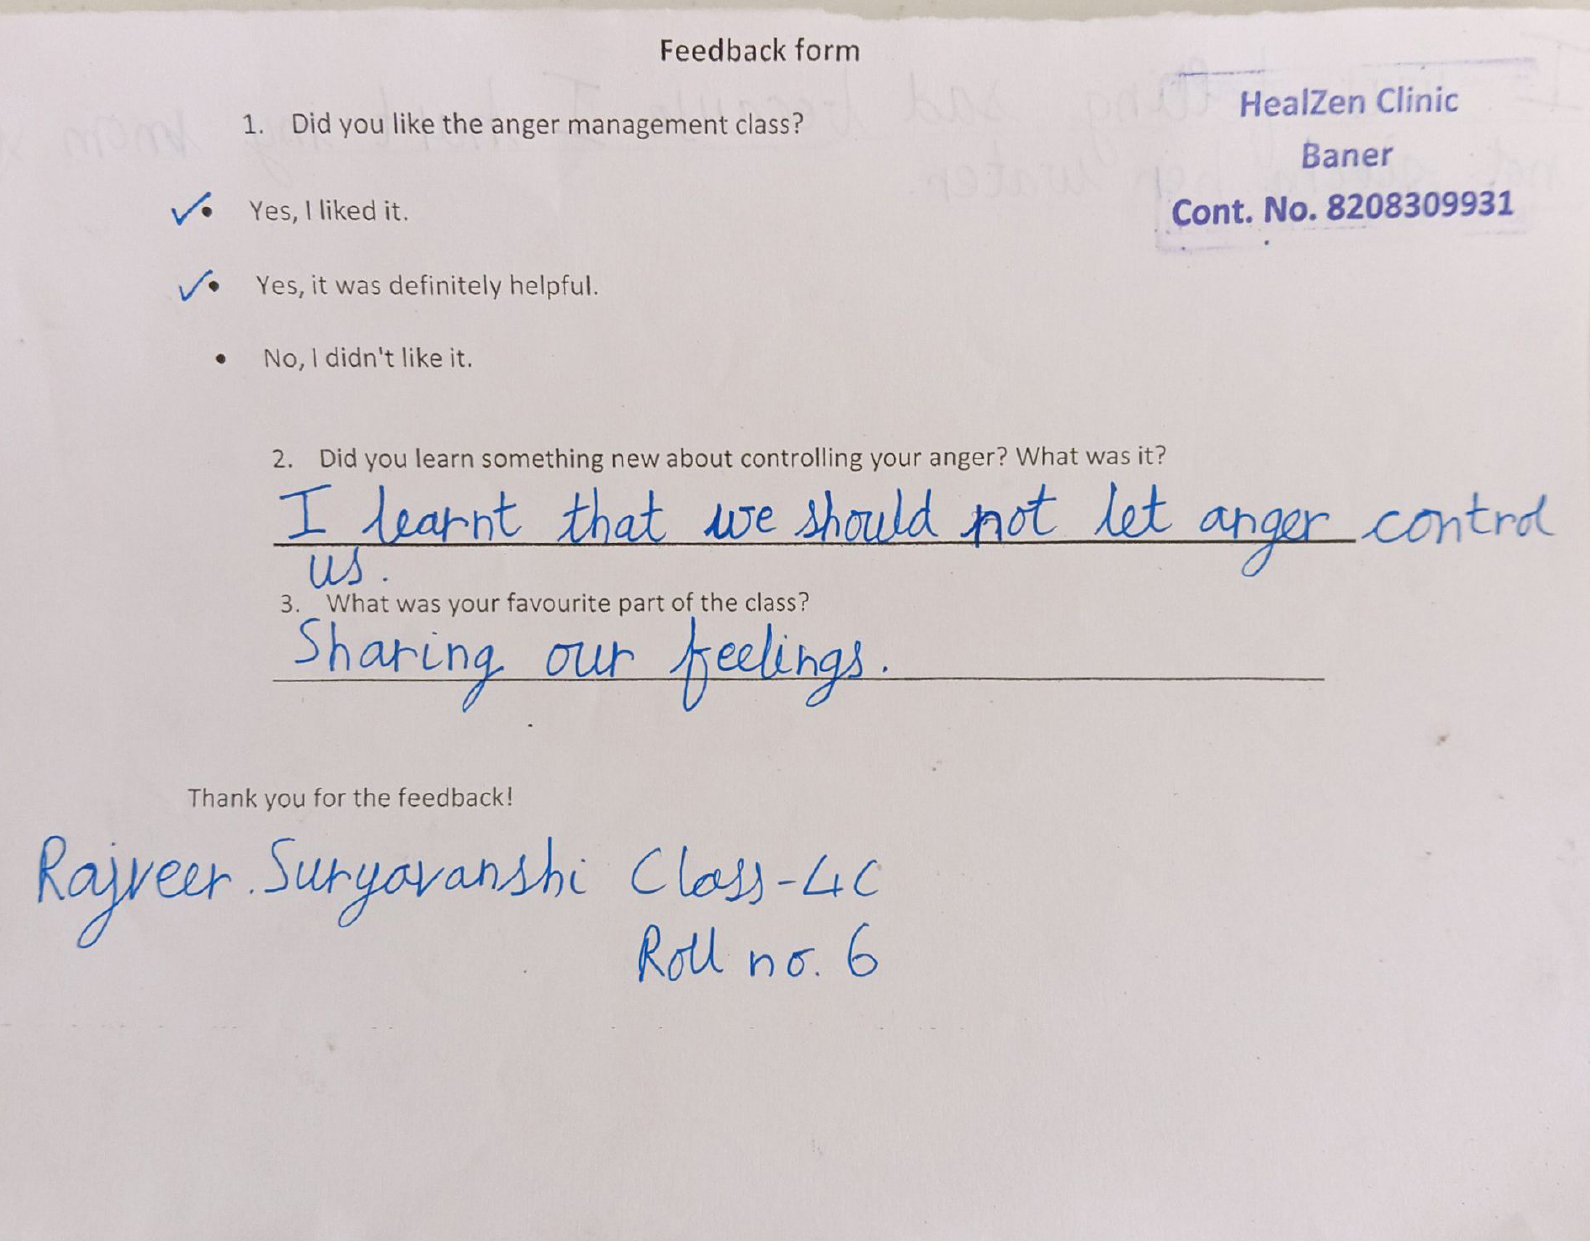 Feedback form
HealZen Clinic
Baner
Cont. No. 8208309931
1. Did you like the anger management class?
Yes, I liked it.
Yes, it was definitely helpful.
No, I didn't like it.
2. Did you learn something new about controlling your anger? What was it?
I learnt that we should not let anger control
us.
3. What was your favourite part of the class?
Sharing our feelings.
Thank you for the feedback!
Rajveer. Suryavanshi Class-4C
Roll no. 6